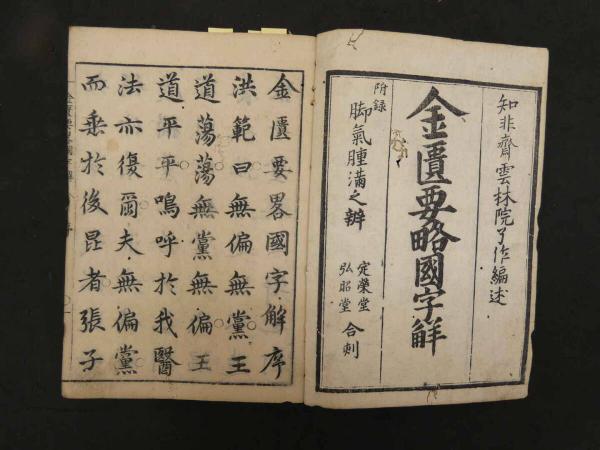 知非齋雲林院了作編述
金匱要略國字解
附録
脚氣腫滿之辨
定榮堂
弘昭堂
合刻
金匱要畧國字解序
洪範曰無偏無黨王
道蕩蕩無黨無偏王
道平平嗚呼於我醫
法亦復爾夫無偏黨
而垂於後昆者張子